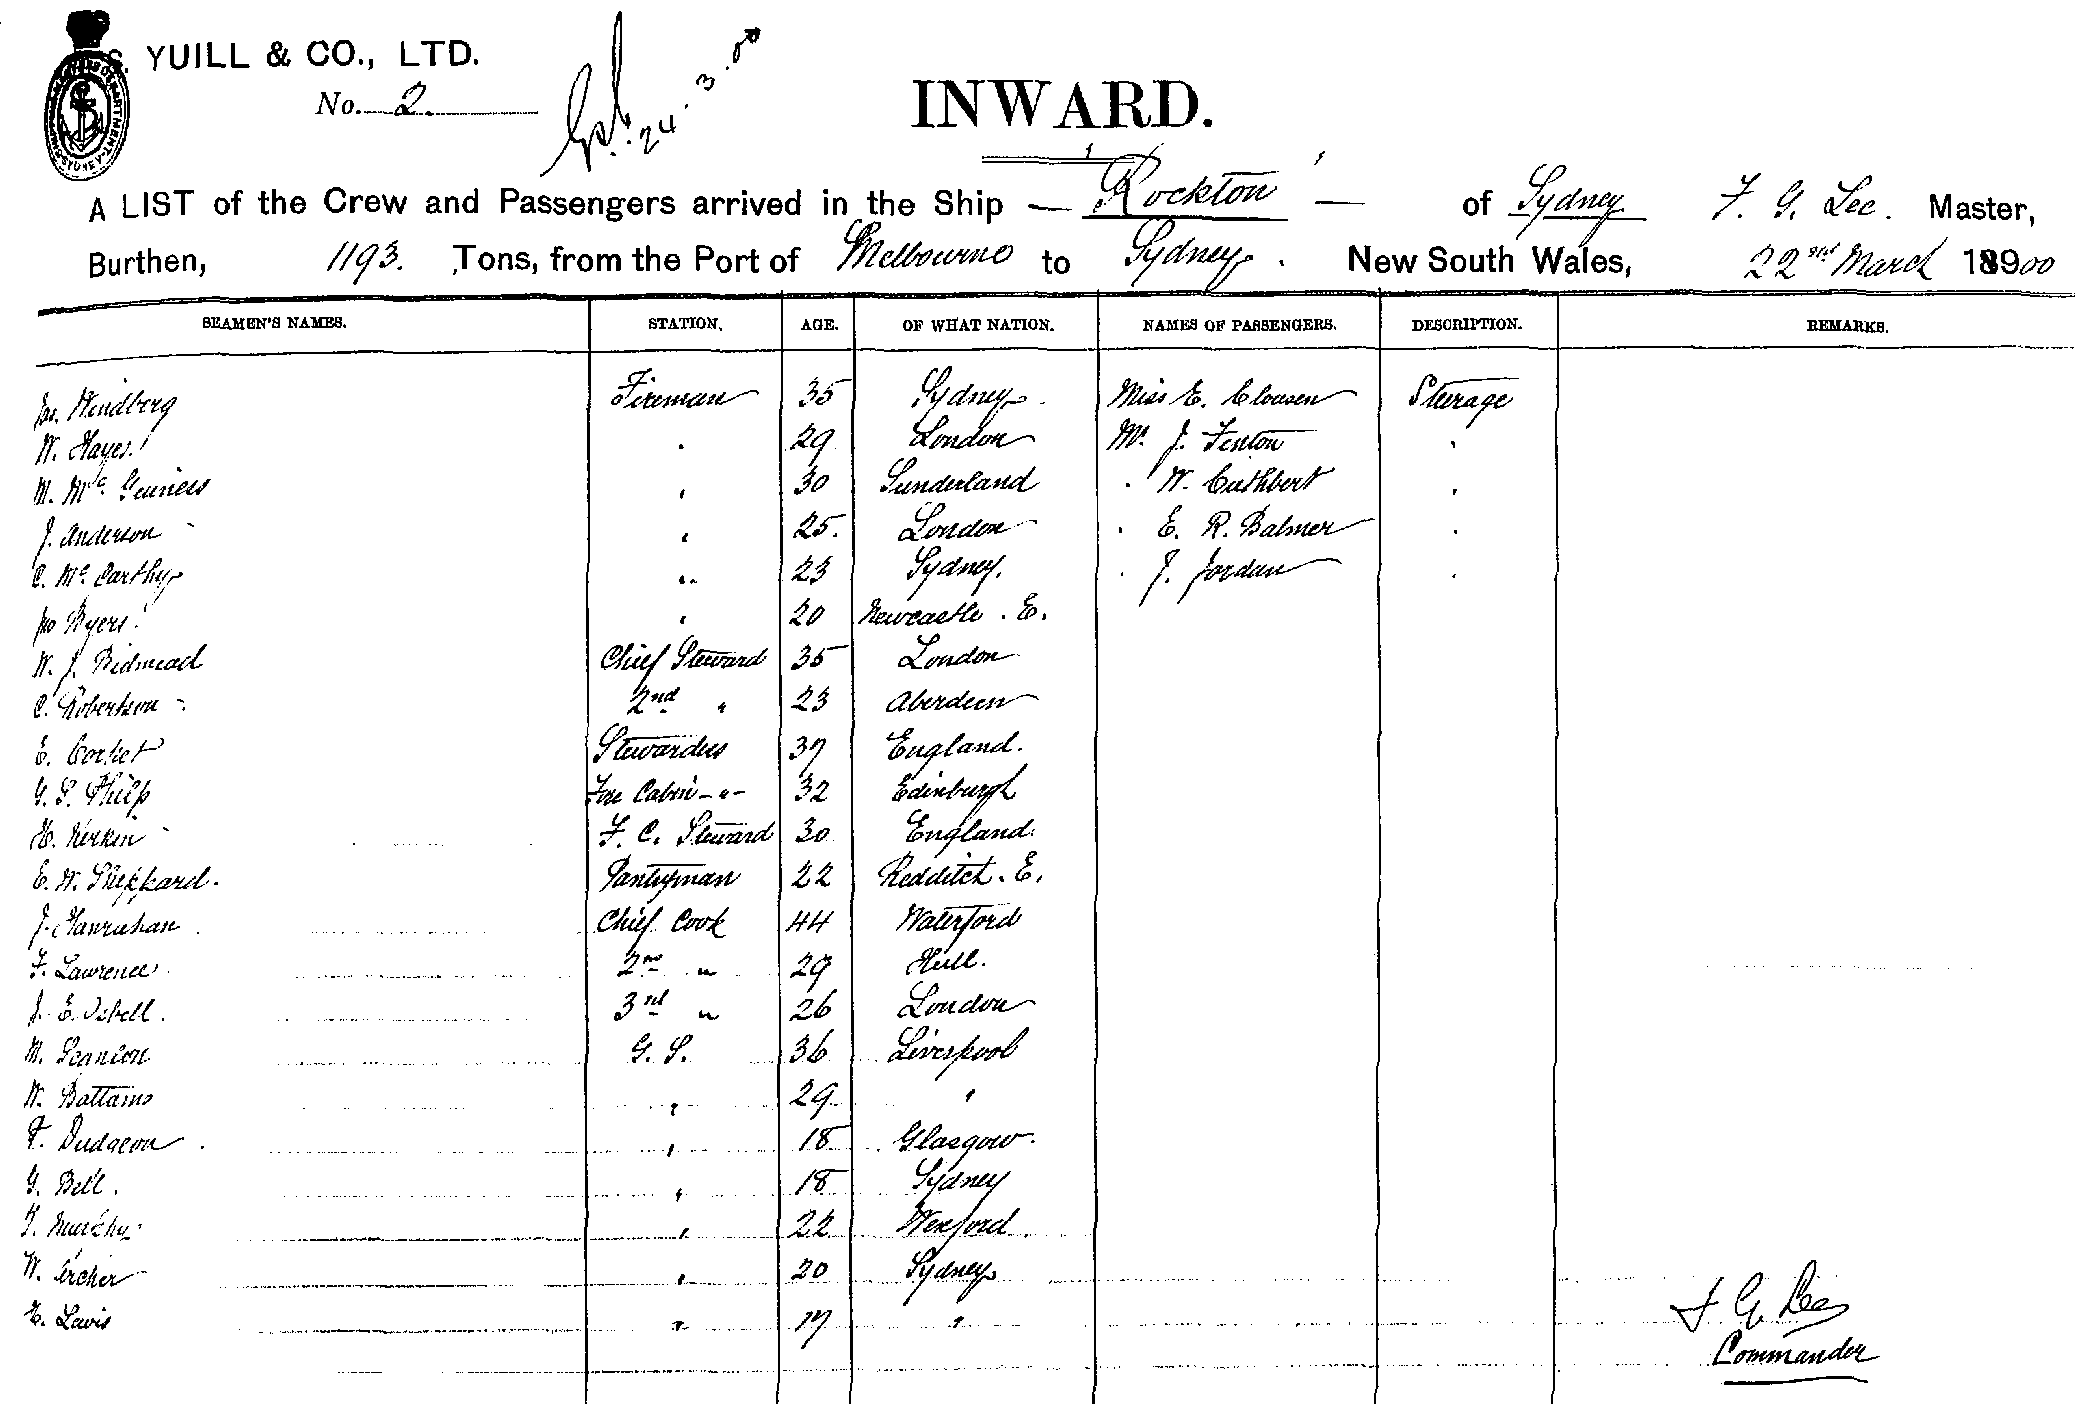 YUILL & CO., LTD.
No. 2.
24.3.00
INWARD.
A LIST of the Crew and Passengers arrived in the Ship — Rockton — of Sydney F. G. Lee. Master,
Burthen, 1193. Tons, from the Port of Melbourne to Sydney. New South Wales, 22nd March 18900
SEAMEN'S NAMES. STATION. AGE. OF WHAT NATION. NAMES OF PASSENGERS. DESCRIPTION. REMARKS.
Windberg Fireman 35 Sydney. Miss E. Clousen Steerage
W. Hayes. " 29 London Mr. J. Fenton "
M. Mc Guiness " 30 Sunderland " W. Cuthbert "
J. Anderson " 25. London " E. R. Balmer "
C. Mc Carthy " 23 Sydney. " J. Jordan "
Jno Byers " 20 Newcastle. E.
W. J. Ridmead Chief Steward 35 London
C. Robertson 2nd " 23 Aberdeen
E. Corket Stewardess 37 England.
G. S. Philp Fore Cabin - " - 32 Edinburgh
H. F. C. Steward 30 England.
E. W. Sheppard. Pantryman 22 Redditch. E.
J. Hanrahan Chief Cook 44 Waterford
F. Lawrence 2nd " 29 Hull.
J. E. Isbell. 3rd " 26 London
M. Scanlon G. S. 36 Liverpool
W. Battams " 29 "
T. Dudgeon " 18 Glasgow.
G. Bell. " 18 Sydney
T. Murphy " 22 Wexford.
W. Archer " 20 Sydney
E. Lewis " 17 "
F G Lee
Commander